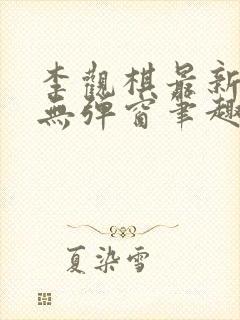 李觀棋最新
無彈窗筆趣
夏染雪